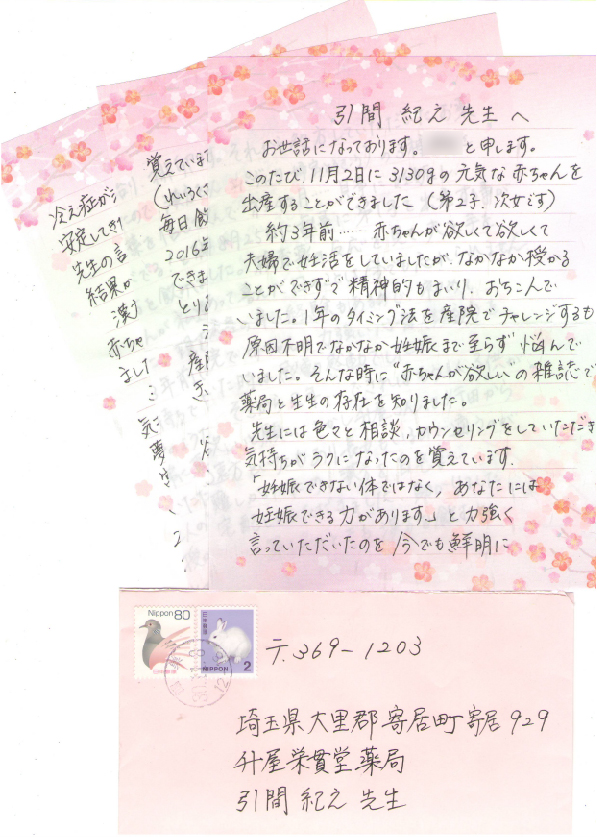 引間 紀之 先生へ
お世話になっております。 と申します。
このたび11月2日に3130gの元気な赤ちゃんを
出産することができました(第2子.次女です)
約3年前…… 赤ちゃんが欲しくて欲しくて
夫婦で妊活をしていましたが、なかなか授かる
ことができずで精神的もまいり、おちこんで
いました。1年のタイミング法を産院でチャレンジするも
原因不明でなかなか妊娠まで至らず悩んで
いました。そんな時に"赤ちゃんが欲しい"の雑誌で
薬局と生生の存在を知りました。
先生には色々と相談,カウンセリングをしていただき
気持ちがラクになったのを覚えています.
「妊娠できない体ではなく,あなたには
妊娠できる力があります.」と力強く
言っていただいたのを今でも鮮明に
覚えていま
毎日飲
2016年
できま
冷え症が
安定してき
先生の言
結果が
漢
赤ちゃ
ました
Nippon 80
日本郵便
NIPPON
2
〒.369-1203
埼玉県大里郡寄居町寄居929
升屋栄貫堂薬局
引間 紀之 先生